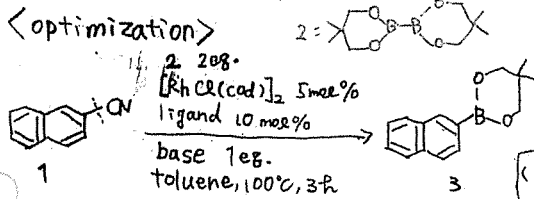 <optimization>
2 =
O O B-B O O
2 2eq.
[RhCl(cod)]2 5mol%
ligand 10 mol%
CN
base 1eq.
toluene, 100°C, 3h
O B O
1
3